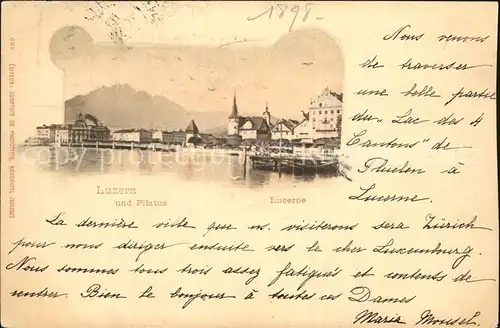 1898
602 Editeur: Comptoir de Phototypie, Neuchatel (Suisse)
Nous venons
de traverser
une belle partie
du "Lac des 4
Cantons" de
Fluelen à
Lucerne.
Luzern
und Pilatus
Lucerne
La dernière ville que ns. visiterons sera Zürich
pour nous diriger ensuite vers le cher Luxembourg.
Nous sommes tous trois assez fatigués et contents de
rentrer. Bien le bonjour à toutes ces Dames
Maria